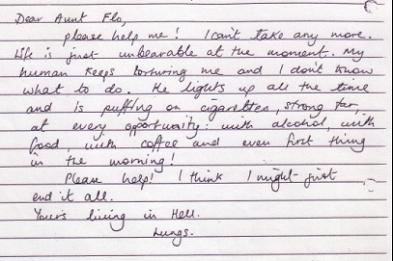 Dear Aunt Flo,
please help me! I can't take any more.
Life is just unbearable at the moment. My
human keeps torturing me and I don't know
what to do. He lights up all the time
and is puffing on cigarettes, strong tar,
at every opportunity: with alcohol, with
food, with coffee and even first thing
in the morning!
Please help! I think I might just
end it all.
Yours living in Hell.
Lungs.